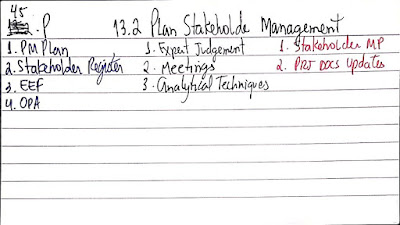 45
.P 13.2 Plan Stakeholde Management
1. PM Plan 1. Expert Judgement 1. Stakeholder MP
2. Stakeholder Register 2. Meetings 2. PRJ DOCS Updates
3. EEF 3. Analytical Techniques
4. OPA